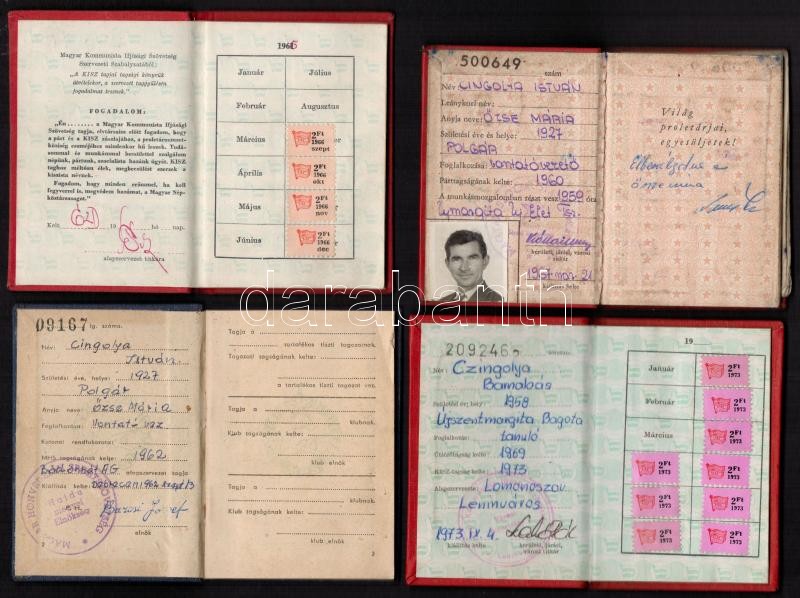 Magyar Kommunista Ifjúsági Szövetség
Szervezeti Szabályzatából:
FOGADALOM:
"Én . . . . . . . . a Magyar Kommunista Ifjúsági
Szövetség tagja, elvtársaim előtt fogadom, hogy
a párt és a KISZ zászlajához, a proletárnemzet-
köziség eszméjéhez mindenkor hű leszek. Tudá-
sommal és munkámmal becsülettel szolgálom
népünk, pártunk, szocialista hazánk ügyét. KISZ
taghoz méltóan élek, megbecsülést szerzek a
kisznista névnek.
Fogadom, hogy minden erőmmel, ha kell
fegyverrel is, megvédem hazámat, a Magyar Nép-
köztársaságot."
Kelt
196
hó
nap.
alapszervezet titkára
1966
Január
Július
Február
Augusztus
Március
2Ft
1966
szept
Április
2Ft
1966
okt
Május
2Ft
1966
nov
Június
2Ft
1966
dec
500649
szám
Név: CINGOLYA ISTVÁN
Leánykori név:
Anyja neve: ŐZSE MÁRIA
Születési éve és helye: 1927
POLGÁR
Foglalkozása: vontatóvezető
Párttagságának kelte: 1960
A munkásmozgalomban részt vesz 1959 óta
kerületi, járási, városi
titkár
1967 már 21
kiállítás kelte
Világ
proletárjai,
egyesüljetek!
09167 ig. száma.
Név: Cingolya
István
Születési éve, helye: 1927
Polgár
Anyja neve: Őzse Mária
Foglalkozása: Vontató vez
Katonai rendfokozata:
MHS tagságának kelte: 1962
alapszervezet tagja
Kiállítás kelte: Debrecen 1962 szept 13
Hajdu
megyei
Elnökség
elnök
2
Tagja a
tartalékos tiszti tagozatnak.
Tagozati tagságának kelte:
a tartalékos tiszti tagozat vez.
Tagja a
klubnak.
Klub tagságának kelte:
klub elnök
Tagja a
klubnak.
Klub tagságának kelte:
klub elnök
3
209246
Név: Czingolya
Barnabás
Születési év; hely: 1958
Újszentmargita Bagota
Foglalkozás: tanuló
Úttörőtagság kelte: 1969
KISZ-tagság kelte: 1973
Alapszervezete: Lomonoszov
Leninváros
1973. IX. 4.
kiállítás kelte
kerületi, járási,
városi titkár
19
Január
2Ft
1973
Február
2Ft
1973
Március
2Ft
1973
2Ft
1973
2Ft
1973
2Ft
1973
2Ft
1973
2Ft
1973
2Ft
1973
darabanth